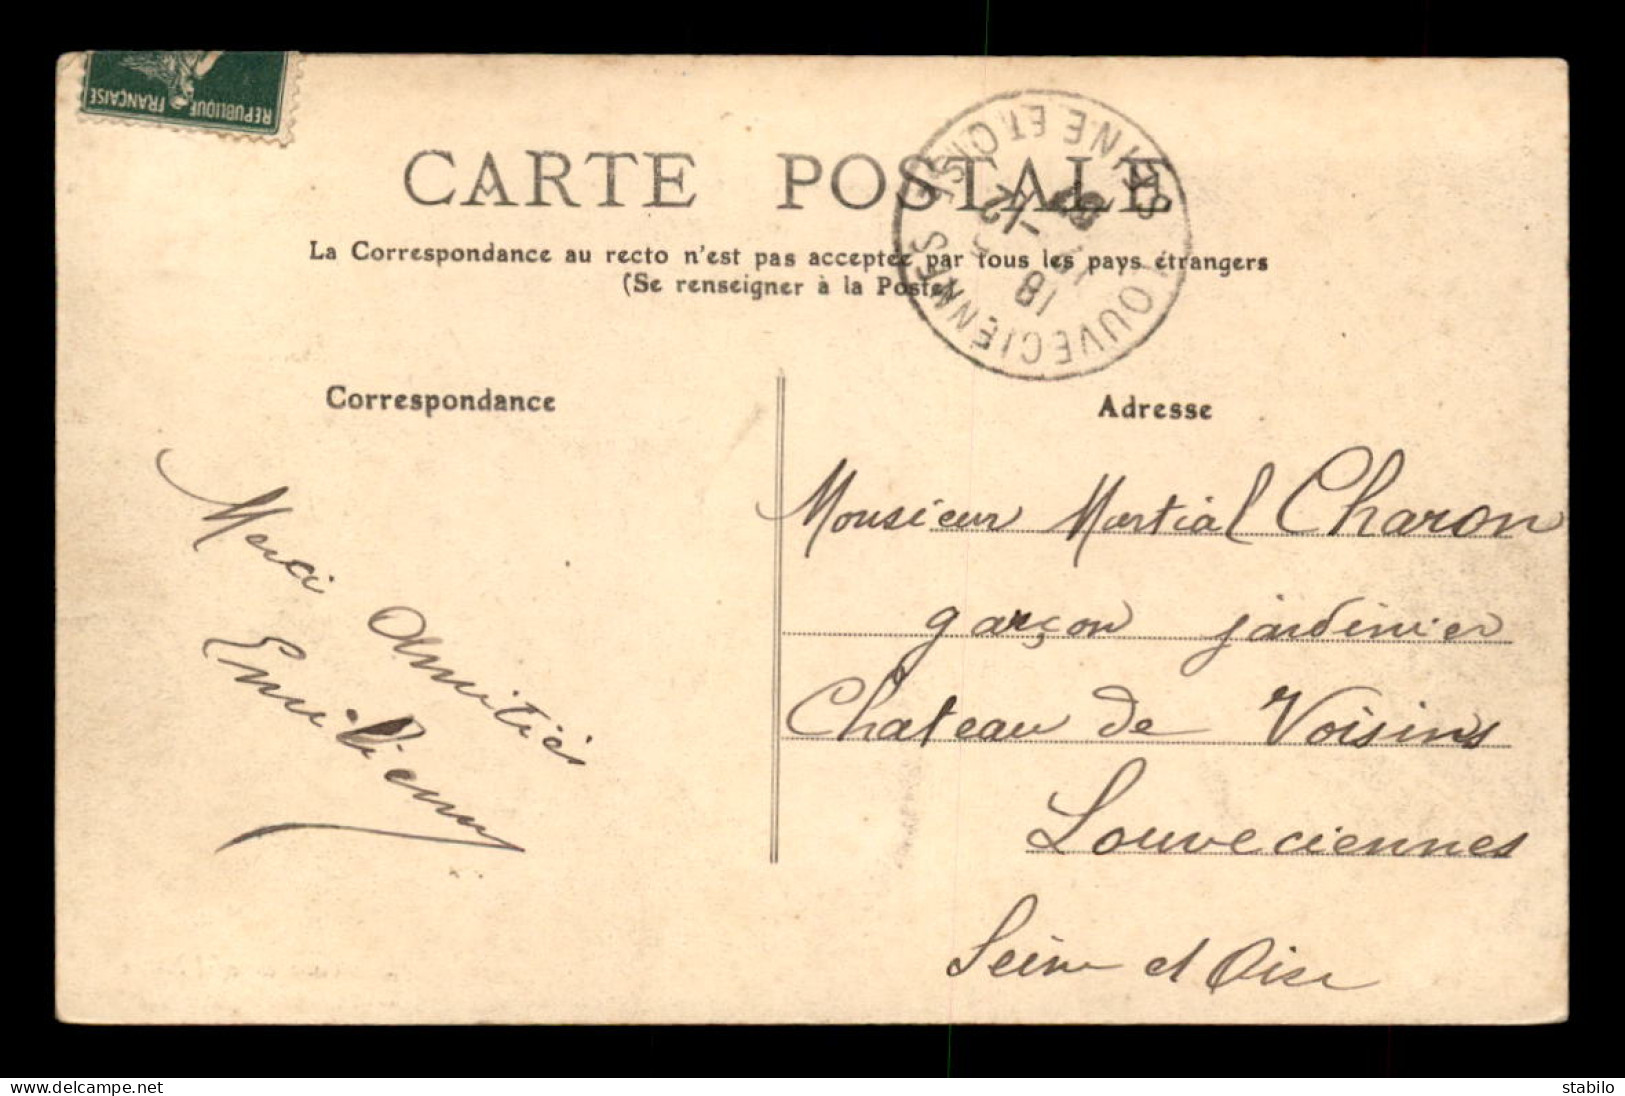 REPUBLIQUE FRANÇAISE
CARTE POSTALE
La Correspondance au recto n'est pas acceptée par tous les pays étrangers
(Se renseigner à la Poste)
LOUVECIENNES SEINE ET OISE
18
Correspondance
Adresse
Merci
Amitiés
Emilienne
Monsieur Martial Charon
garçon jardinier
Chateau de Voisins
Louveciennes
Seine et Oise
www.delcampe.net
stabilo